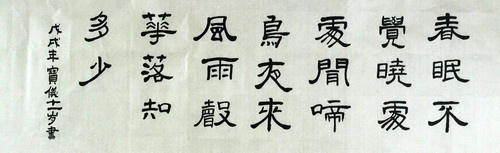 春眠不
覺曉處
處聞啼
鳥夜來
風雨聲
華落知
多少
戊戌年寶儀十一岁書